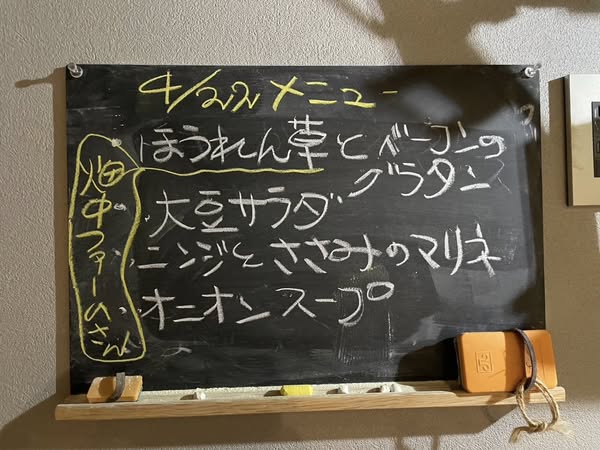 4/22メニュー
ほうれん草とベーコンの
グラタン
大豆サラダ
ニンジンとささみのマリネ
オニオンスープ
畑中ファームさん